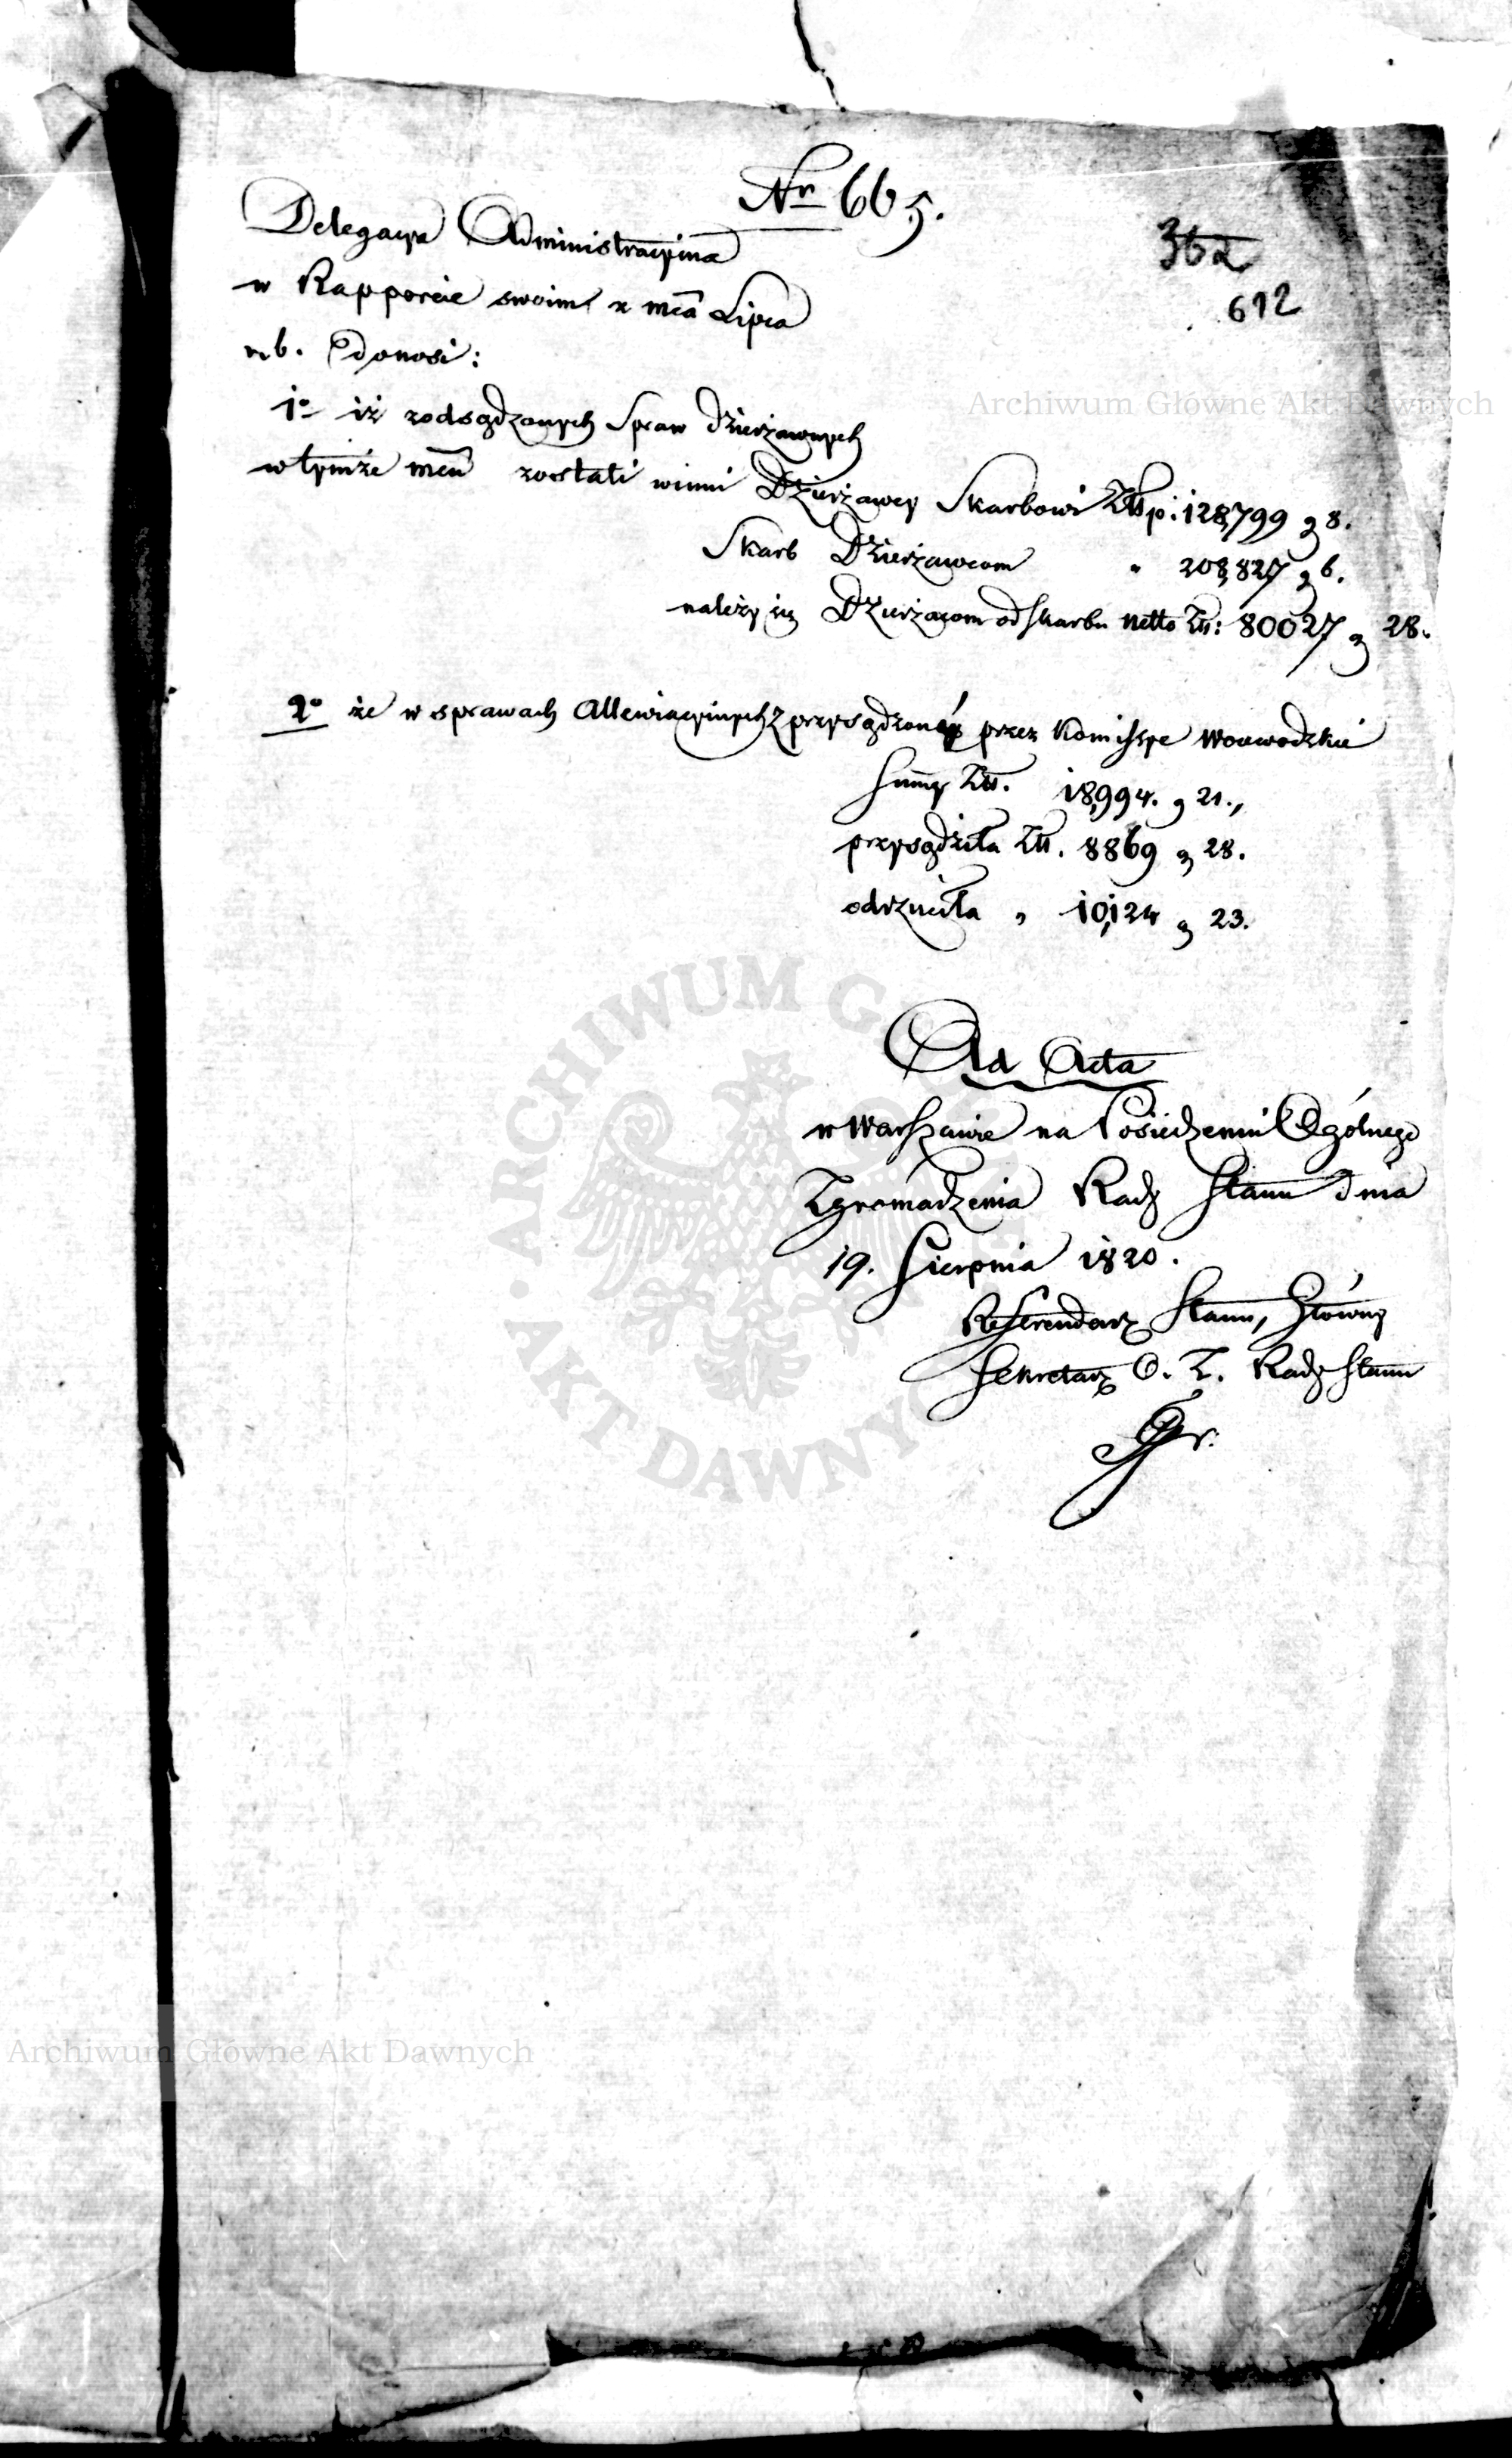 Nr 665.
362
612
Delegacya Administracyina
w Rapporcie swoim z mca Lipca
r. b. Donosi:
1o iż z odsądzonych Spraw Dzierżawnych
w tymże mcu zostali winni Dzierżawcy Skarbowi Złlp: 128,799 g 8.
Skarb Dzierżawcom " 208,827 g 6.
należy się Dzierżawcom od Skarbu netto Złł: 80027 g 28.
2o że w sprawach Allewiacyinych z przysądzonéy przez Kommissye Woiewodzkie
Summy Złł. 18,994. g 21.,
przysądziła Złł. 8869 g 28.
odrzuciła " 10,124 g 23.
Ad Acta
w Warszawie na Posiedzeniu Ogólnego
Zgromadzenia Rady Stanu dnia
19. Sierpnia 1820.
Referendarz Stanu, Główny
Sekretarz O. Z. Rady Stanu
Archiwum Główne Akt Dawnych
ARCHIWUM GŁÓWNE • AKT DAWNYCH •
Archiwum Główne Akt Dawnych